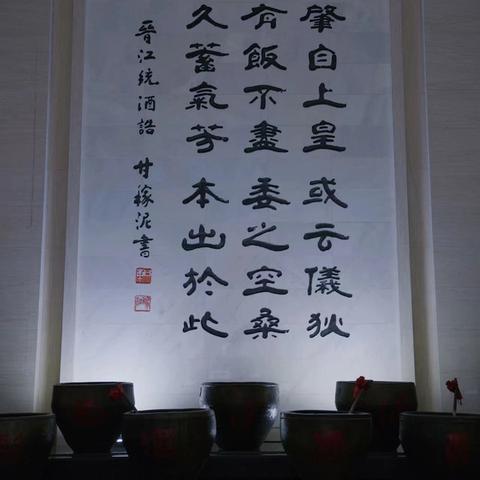 肇自上皇或云儀狄
有飯不盡委之空桑
久蓄氣芳本出於此
晉江統酒誥 甘稼泥書